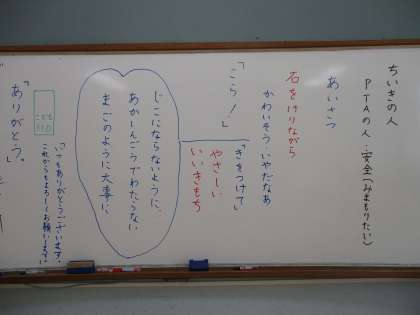 ちいきの人
PTAの人…安全(みまもりたい)
あいさつ
石をけりながら
かわいそう・いやだなあ
「こら!」
「きをつけて」
やさしい
いいきもち
じこにならないように、
あかしんごうでわたらない
まごのように大事に
「いつもありがとうございます。
これからもよろしくお願いします。」
こども
110
「ありがとう。」